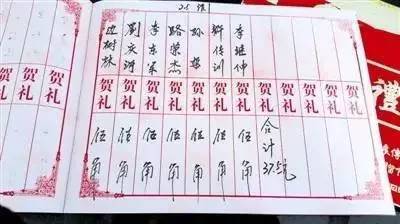 贺礼
贺礼
树林 贺礼 伍角
刘庆 贺礼 伍角
李东军 贺礼 伍角
路荣杰 贺礼 伍角
孙哲 贺礼 伍角
传训 贺礼 伍角
李继仲 贺礼 伍角
贺礼 合计
贺礼
贺礼
贺礼
贺礼
禮